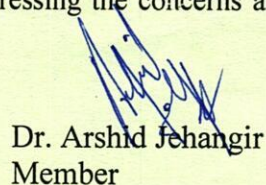 ressing the concerns a
Dr. Arshid Jehangir
Member